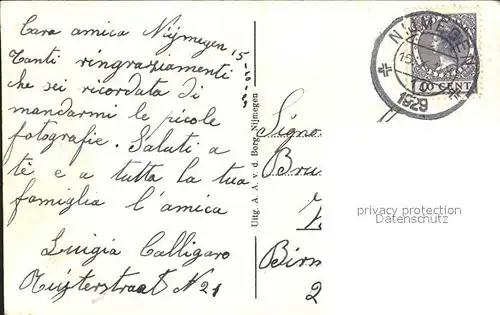 Cara amica Nijmegen 15
Tanti ringraziamenti
che sei ricordata di
mandarmi le picole
fotografie. Saluti a
tè e a tutta la tua
famiglia l'amica
Luigia Calligaro
N 21
Uitg. A. A. v. d. Borg, Nijmegen
NIJMEGEN
15
1929
10 CENT
Birm
2
privacy protection
Datenschutz